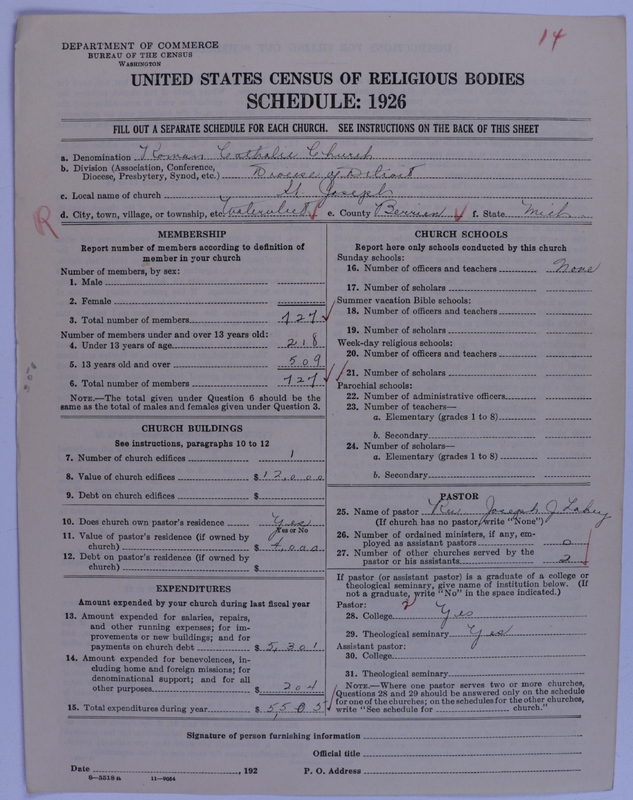 14
DEPARTMENT OF COMMERCE
BUREAU OF THE CENSUS
WASHINGTON
UNITED STATES CENSUS OF RELIGIOUS BODIES
SCHEDULE: 1926
FILL OUT A SEPARATE SCHEDULE FOR EACH CHURCH. SEE INSTRUCTIONS ON THE BACK OF THIS SHEET
a. Denomination Roman Catholic Church
b. Division (Association, Conference,
Diocese, Presbytery, Synod, etc.) Diocese of Detroit
c. Local name of church St Joseph
R d. City, town, village, or township, etc. Watervliet e. County Berrien f. State Mich
MEMBERSHIP
Report number of members according to definition of
member in your church
Number of members, by sex:
1. Male
2. Female
3. Total number of members 727
Number of members under and over 13 years old:
4. Under 13 years of age 218
5. 13 years old and over 509
6. Total number of members 727
NOTE.—The total given under Question 6 should be the
same as the total of males and females given under Question 3.
CHURCH BUILDINGS
See instructions, paragraphs 10 to 12
7. Number of church edifices 1
8. Value of church edifices $ 12,000
9. Debt on church edifices $
10. Does church own pastor's residence Yes
Yes or No
11. Value of pastor's residence (if owned by
church) $ 4,000
12. Debt on pastor's residence (if owned by
church) $
EXPENDITURES
Amount expended by your church during last fiscal year
13. Amount expended for salaries, repairs,
and other running expenses; for im-
provements or new buildings; and for
payments on church debt $ 5,301
14. Amount expended for benevolences, in-
cluding home and foreign missions; for
denominational support; and for all
other purposes $ 204
15. Total expenditures during year $ 5,505
CHURCH SCHOOLS
Report here only schools conducted by this church
Sunday schools:
16. Number of officers and teachers None
17. Number of scholars
Summer vacation Bible schools:
18. Number of officers and teachers
19. Number of scholars
Week-day religious schools:
20. Number of officers and teachers
21. Number of scholars
Parochial schools:
22. Number of administrative officers
23. Number of teachers—
a. Elementary (grades 1 to 8)
b. Secondary
24. Number of scholars—
a. Elementary (grades 1 to 8)
b. Secondary
PASTOR
25. Name of pastor Rev Joseph J Lahey
(If church has no pastor, write "None")
26. Number of ordained ministers, if any, em-
ployed as assistant pastors 0
27. Number of other churches served by the
pastor or his assistants 2
If pastor (or assistant pastor) is a graduate of a college or
theological seminary, give name of institution below. (If
not a graduate, write "No" in the space indicated.)
Pastor: 2
28. College Yes
29. Theological seminary Yes
Assistant pastor:
30. College
31. Theological seminary
NOTE.—Where one pastor serves two or more churches,
Questions 28 and 29 should be answered only on the schedule
for one of the churches; on the schedules for the other churches,
write "See schedule for church."
Signature of person furnishing information
Official title
Date , 192 P. O. Address
8—5518 a 11—9034